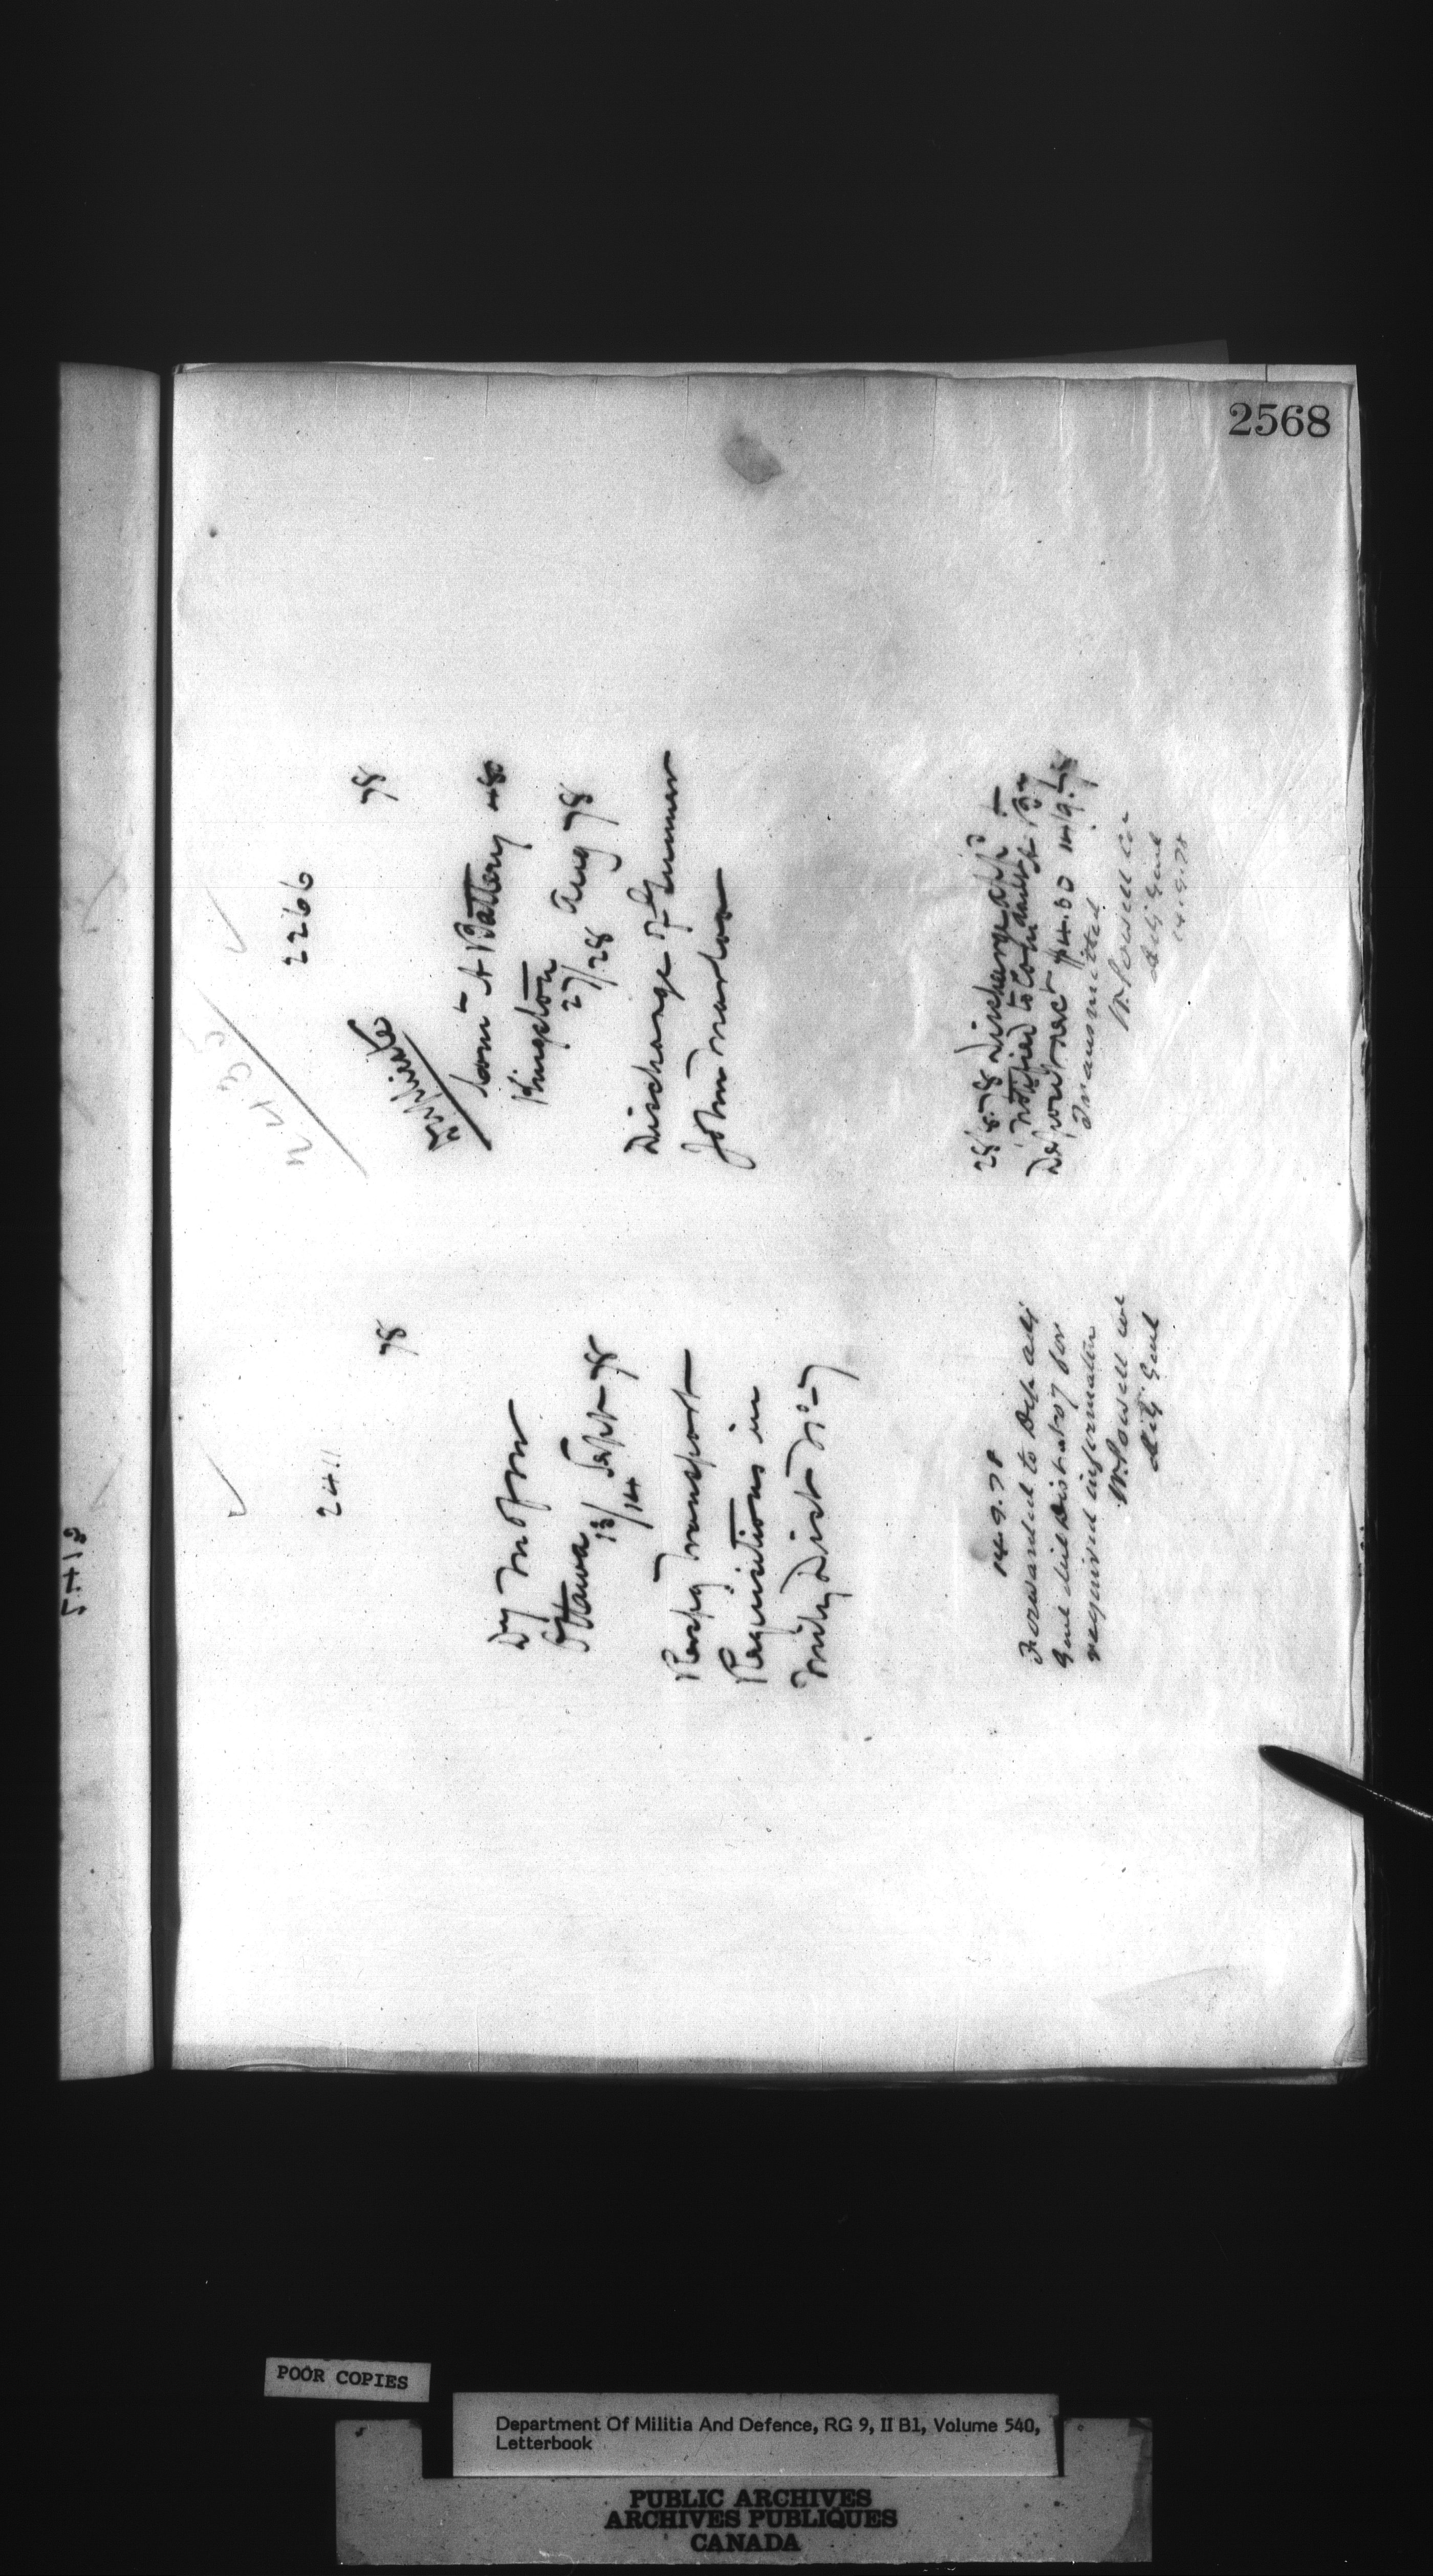 2568
2411
78
Dy M of M
Ottawa
13/14 Sept 78
Respg Transport
Requisitions in
Mily Dist No 7
14.9.78
Forwarded to Dep adj
Genl Mil Dist No 7 for
required information
W. Powell Col
Adj Genl
2433
2266
78
Duplicate
Comt A Battery
Kingston
27/28 Aug 78
Discharge of Gunner
John
28/8/78 Discharge app'd &
notified to Comdant By
Deposit rec'd $4.00 14/9.78
Transmitted
W. Powell Col
Adj Genl
14.9.78
POOR COPIES
Department Of Militia And Defence, RG 9, II B1, Volume 540,
Letterbook
PUBLIC ARCHIVES
ARCHIVES PUBLIQUES
CANADA